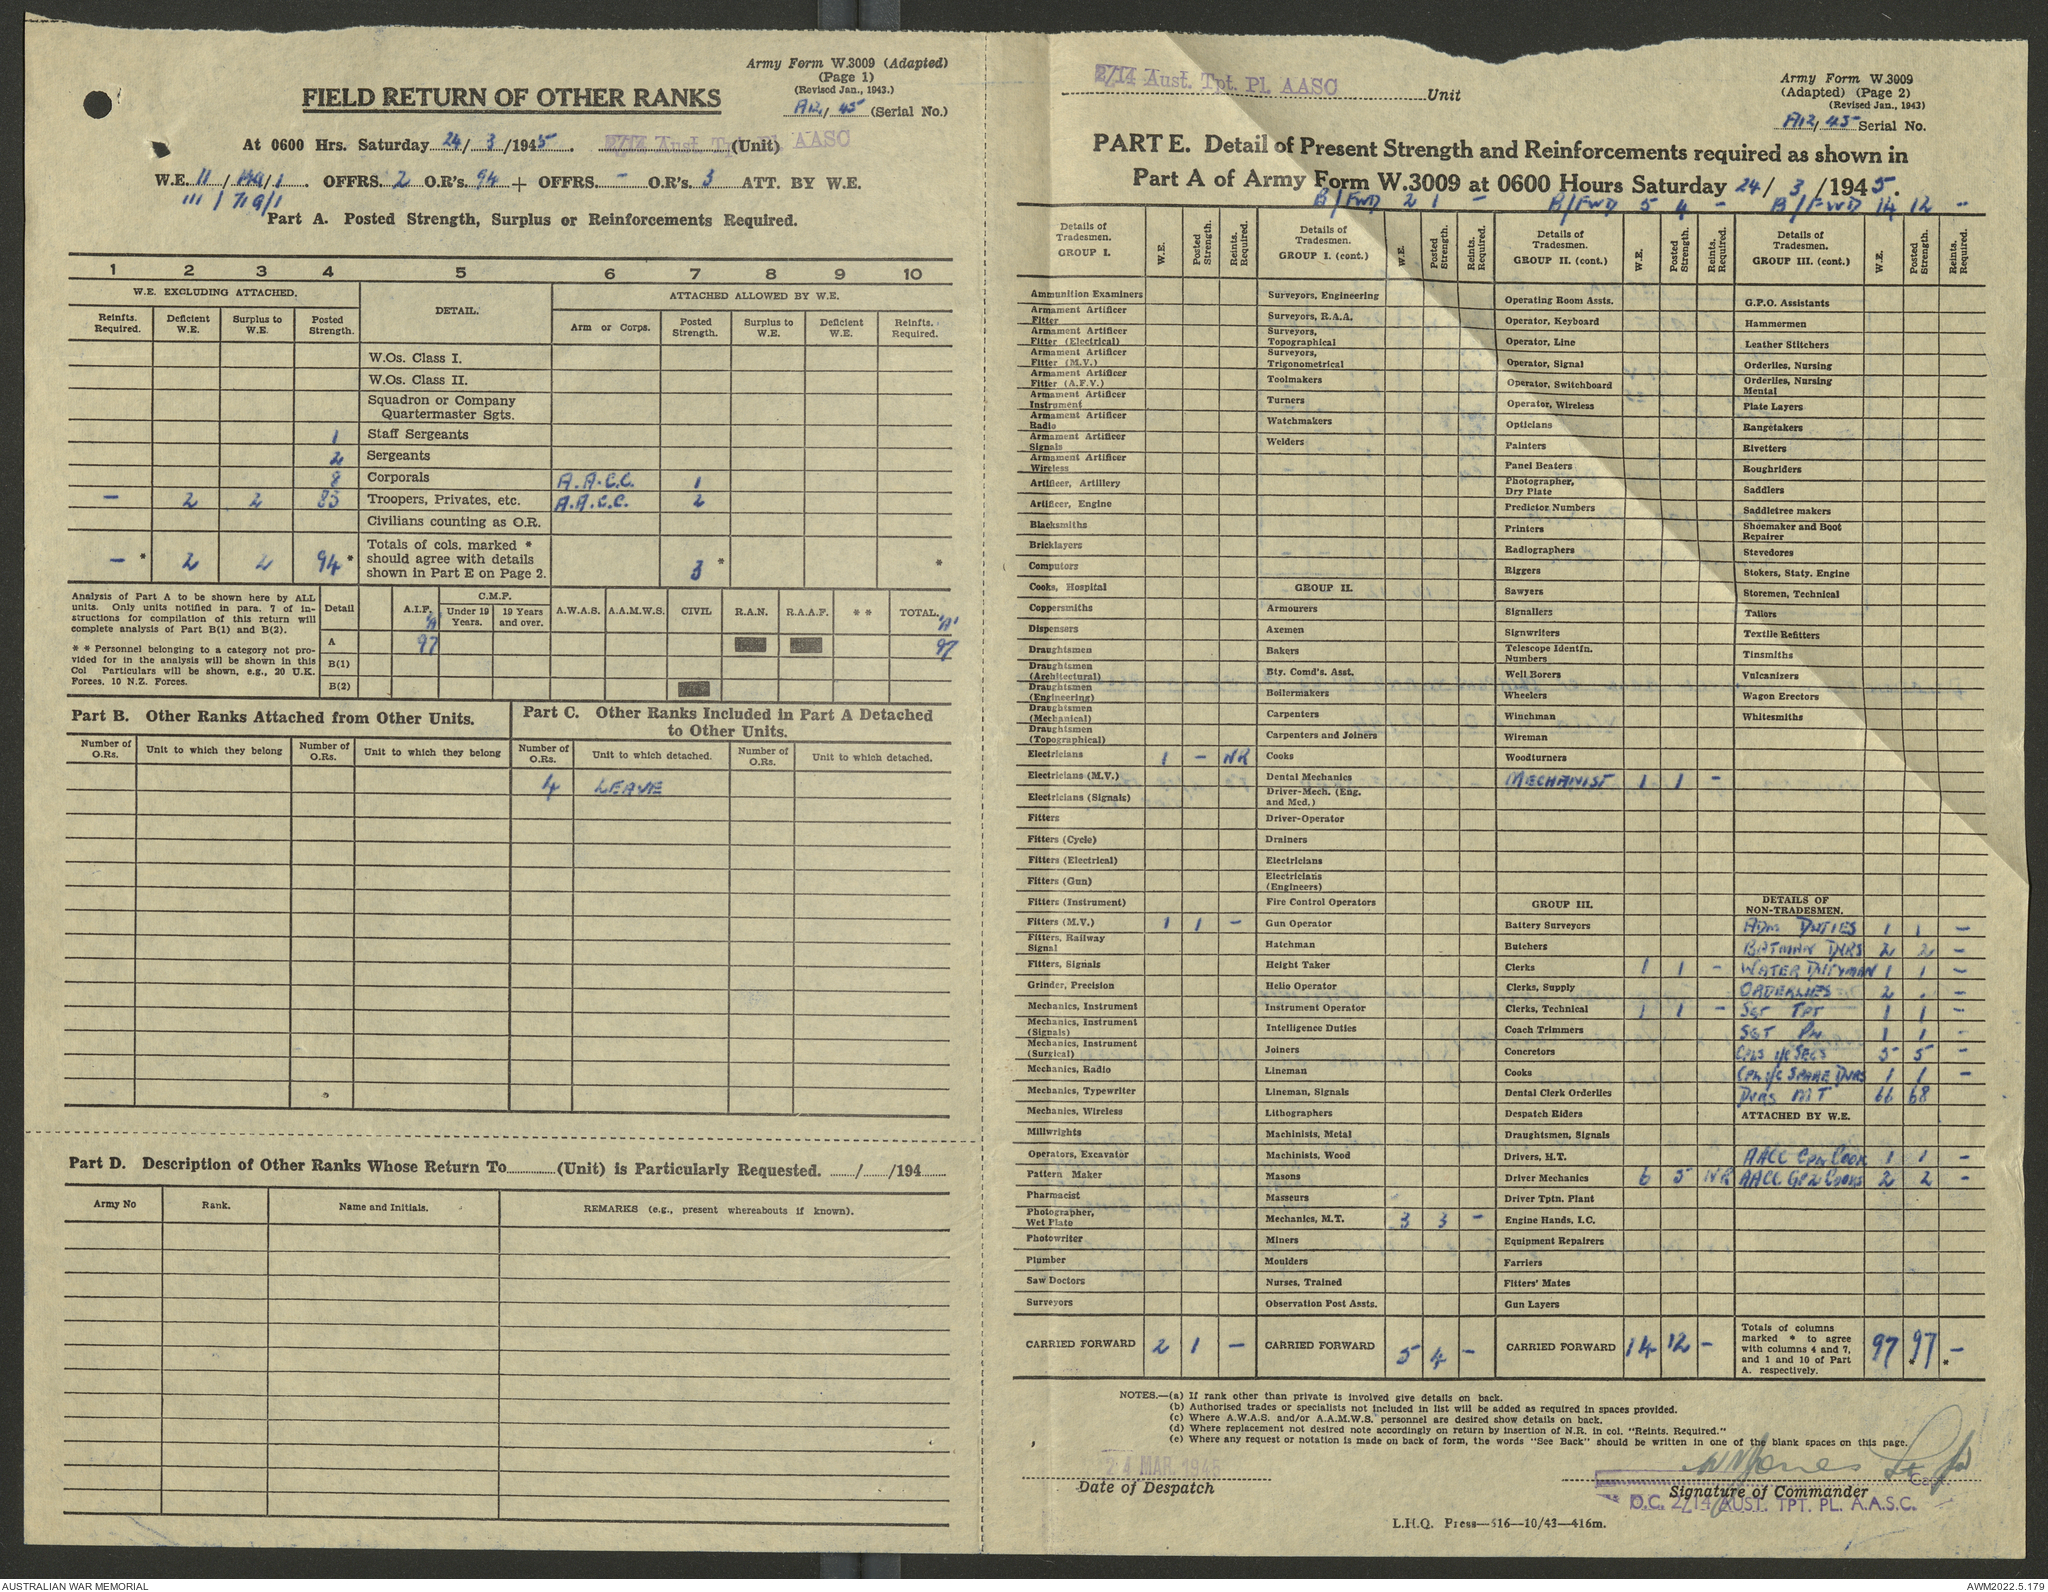 Army Form W.3009 (Adapted)
(Page 1)
(Revised Jan., 1943.)
FIELD RETURN OF OTHER RANKS
A12/45 (Serial No.)
At 0600 Hrs. Saturday 24/3/1945. 2/14 Aust. Tpt. Pl. AASC (Unit)
W.E. 11/ /1. OFFRS. 2 O.R's. 94 + OFFRS. - O.R's. 3 ATT. BY W.E.
111/719/1
Part A. Posted Strength, Surplus or Reinforcements Required.
1 2 3 4 5 6 7 8 9 10
W.E. EXCLUDING ATTACHED. DETAIL. ATTACHED ALLOWED BY W.E.
Reinfts. Required. Deficient W.E. Surplus to W.E. Posted Strength. Arm or Corps. Posted Strength. Surplus to W.E. Deficient W.E. Reinfts. Required.
W.Os. Class I.
W.Os. Class II.
Squadron or Company
Quartermaster Sgts.
1 Staff Sergeants
2 Sergeants
8 Corporals A.A.C.C. 1
- 2 2 83 Troopers, Privates, etc. A.A.C.C. 2
Civilians counting as O.R.
- * 2 2 94 * Totals of cols. marked * should agree with details shown in Part E on Page 2. 3 * *
Analysis of Part A to be shown here by ALL units. Only units notified in para. 7 of instructions for compilation of this return will complete analysis of Part B(1) and B(2).
* * Personnel belonging to a category not provided for in the analysis will be shown in this Col Particulars will be shown, e.g., 20 U.K. Forces. 10 N.Z. Forces.
Detail A.I.F. 'A' C.M.F. Under 19 Years. 19 Years and over. A.W.A.S. A.A.M.W.S. CIVIL R.A.N. R.A.A.F. * * TOTAL. 'A'
A 97 97
B(1)
B(2)
Part B. Other Ranks Attached from Other Units.
Number of O.Rs. Unit to which they belong Number of O.Rs. Unit to which they belong
Part C. Other Ranks Included in Part A Detached to Other Units.
Number of O.Rs. Unit to which detached. Number of O.Rs. Unit to which detached.
4 LEAVE
Part D. Description of Other Ranks Whose Return To (Unit) is Particularly Requested. / /194
Army No Rank. Name and Initials. REMARKS (e.g., present whereabouts if known).
2/14 Aust. Tpt. Pl. AASC Unit
Army Form W.3009
(Adapted) (Page 2)
(Revised Jan., 1943)
A12/45 Serial No.
PART E. Detail of Present Strength and Reinforcements required as shown in
Part A of Army Form W.3009 at 0600 Hours Saturday 24/3/1945.
B/FWD 2 1 - B/FWD 5 4 - B/FWD 14 12 -
Details of Tradesmen. GROUP I. W.E. Posted Strength. Reints. Required.
Ammunition Examiners
Armament Artificer Fitter
Armament Artificer Fitter (Electrical)
Armament Artificer Fitter (M.V.)
Armament Artificer Fitter (A.F.V.)
Armament Artificer Instrument
Armament Artificer Radio
Armament Artificer Signals
Armament Artificer Wireless
Artificer, Artillery
Artificer, Engine
Blacksmiths
Bricklayers
Computors
Cooks, Hospital
Coppersmiths
Dispensers
Draughtsmen
Draughtsmen (Architectural)
Draughtsmen (Engineering)
Draughtsmen (Mechanical)
Draughtsmen (Topographical)
Electricians 1 - NR
Electricians (M.V.)
Electricians (Signals)
Fitters
Fitters (Cycle)
Fitters (Electrical)
Fitters (Gun)
Fitters (Instrument)
Fitters (M.V.) 1 1 -
Fitters, Railway Signal
Fitters, Signals
Grinder, Precision
Mechanics, Instrument
Mechanics, Instrument (Signals)
Mechanics, Instrument (Surgical)
Mechanics, Radio
Mechanics, Typewriter
Mechanics, Wireless
Millwrights
Operators, Excavator
Pattern Maker
Pharmacist
Photographer, Wet Plate
Photowriter
Plumber
Saw Doctors
Surveyors
CARRIED FORWARD 2 1 -
Details of Tradesmen. GROUP I. (cont.) W.E. Posted Strength. Reints. Required.
Surveyors, Engineering
Surveyors, R.A.A.
Surveyors, Topographical
Surveyors, Trigonometrical
Toolmakers
Turners
Watchmakers
Welders
GROUP II.
Armourers
Axemen
Bakers
Bty. Comd's. Asst.
Boilermakers
Carpenters
Carpenters and Joiners
Cooks
Dental Mechanics
Driver-Mech. (Eng. and Med.)
Driver-Operator
Drainers
Electricians
Electricians (Engineers)
Fire Control Operators
Gun Operator
Hatchman
Height Taker
Helio Operator
Instrument Operator
Intelligence Duties
Joiners
Lineman
Lineman, Signals
Lithographers
Machinists, Metal
Machinists, Wood
Masons
Masseurs
Mechanics, M.T. 3 3 -
Miners
Moulders
Nurses, Trained
Observation Post Assts.
CARRIED FORWARD 5 4 -
Details of Tradesmen. GROUP II. (cont.) W.E. Posted Strength. Reints. Required.
Operating Room Assts.
Operator, Keyboard
Operator, Line
Operator, Signal
Operator, Switchboard
Operator, Wireless
Opticians
Painters
Panel Beaters
Photographer, Dry Plate
Predictor Numbers
Printers
Radiographers
Riggers
Sawyers
Signallers
Signwriters
Telescope Identfn. Numbers
Well Borers
Wheelers
Winchman
Wireman
Woodturners
MECHANIST 1 1 -
GROUP III.
Battery Surveyors
Butchers
Clerks 1 1 -
Clerks, Supply
Clerks, Technical 1 1 -
Coach Trimmers
Concretors
Cooks
Dental Clerk Orderlies
Despatch Riders
Draughtsmen, Signals
Drivers, H.T.
Driver Mechanics 6 5 NR
Driver Tptn. Plant
Engine Hands, I.C.
Equipment Repairers
Farriers
Fitters' Mates
Gun Layers
CARRIED FORWARD 14 12 -
Details of Tradesmen. GROUP III. (cont.) W.E. Posted Strength. Reints. Required.
G.P.O. Assistants
Hammermen
Leather Stitchers
Orderlies, Nursing
Orderlies, Nursing Mental
Plate Layers
Rangetakers
Rivetters
Roughriders
Saddlers
Saddletree makers
Shoemaker and Boot Repairer
Stevedores
Stokers, Staty. Engine
Storemen, Technical
Tailors
Textile Refitters
Tinsmiths
Vulcanizers
Wagon Erectors
Whitesmiths
DETAILS OF NON-TRADESMEN.
ADM DUTIES 1 1 -
BATMAN DVRS 2 2 -
WATER DUTYMAN 1 1 -
ORDERLIES 2 . -
SGT TPT 1 1 -
SGT PN 1 1 -
CPLS i/c SECS 5 5 -
CPL i/c SPARE DVRS 1 1 -
DVRS MT 66 68
ATTACHED BY W.E.
AACC CPL COOK 1 1 -
AACC GP2 COOKS 2 2 -
Totals of columns marked * to agree with columns 4 and 7, and 1 and 10 of Part A. respectively. 97 97 * - *
NOTES.—(a) If rank other than private is involved give details on back.
(b) Authorised trades or specialists not included in list will be added as required in spaces provided.
(c) Where A.W.A.S. and/or A.A.M.W.S. personnel are desired show details on back.
(d) Where replacement not desired note accordingly on return by insertion of N.R. in col. "Reints. Required."
(e) Where any request or notation is made on back of form, the words "See Back" should be written in one of the blank spaces on this page.
24 MAR 1945
Date of Despatch
Capt.
Signature of Commander
O.C. 2/14 AUST. TPT. PL. A.A.S.C.
L.H.Q. Press—516—10/43—416m.
AUSTRALIAN WAR MEMORIAL
AWM2022.5.179